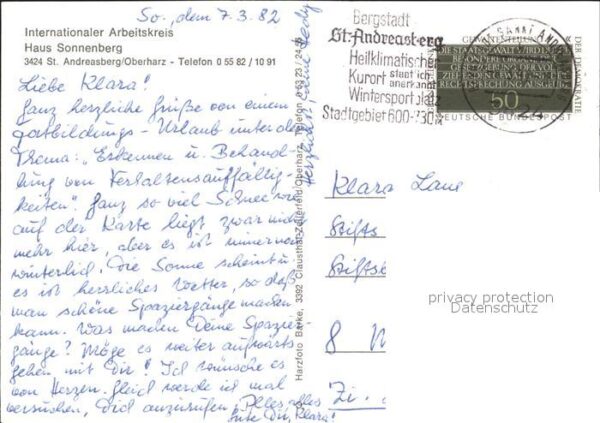 So., dem 7.3.82
Internationaler Arbeitskreis
Haus Sonnenberg
3424 St. Andreasberg/Oberharz - Telefon 0 55 82 / 10 91
Liebe Klara!
Ganz herzliche Grüße von einem
Fortbildungs-Urlaub unter dem
Thema: "Erkennen u. Behand-
lung von Verhaltensauffällig-
keiten". Ganz so viel Schnee wie
auf der Karte liegt zwar nicht
mehr hier, aber es ist immer noch
winterlich. Die Sonne scheint u.
es ist herrliches Wetter, so daß
man schöne Spaziergänge machen
kann. Was machen Deine Spazier-
gänge? Möge es weiter aufwärts
gehen mit Dir! Ich wünsche es
von Herzen. Gleich werde ich mal
versuchen, Dich anzurufen. Alles alles
Gute Dir, Klara!
Herzlichst, Deine
Harzfoto Barke, 3392 Clausthal-Zellerfeld/Oberharz, Telefon
Bergstadt
St. Andreasberg
Heilklimatischer
Kurort staatlich
anerkannt
Wintersportplatz
Stadtgebiet 600-
GEWALTENTEILUNG
DER DEMOKRATIE
DIE STAATSGEWALT WIRD DURCH
BESONDERE ORGANE DER
GESETZGEBUNG, DER VOLL-
ZIEHENDEN GEWALT UND DER
RECHTSPRECHUNG AUSGEÜBT
50
DEUTSCHE BUNDESPOST
Klara
Stifts
8
privacy protection
Datenschutz